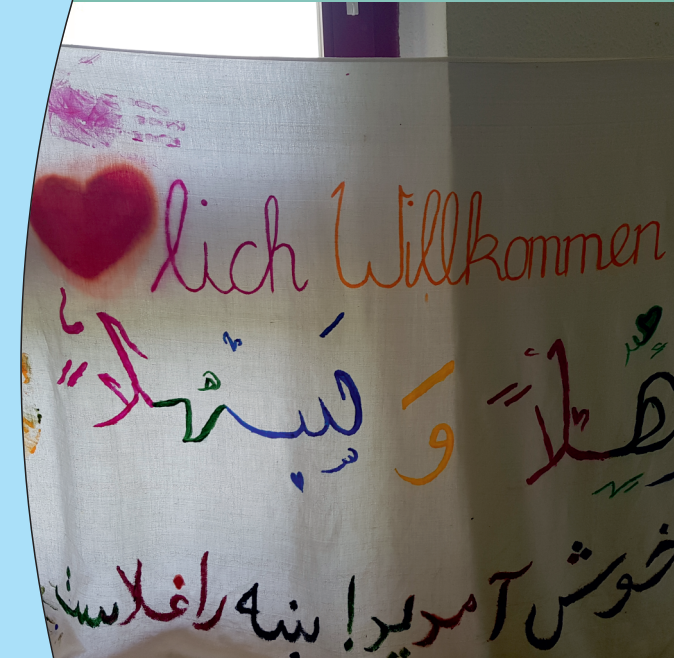 lich Willkommen
هلاً وَ سَهلاً
خوش آمدید! ښه راغلاست